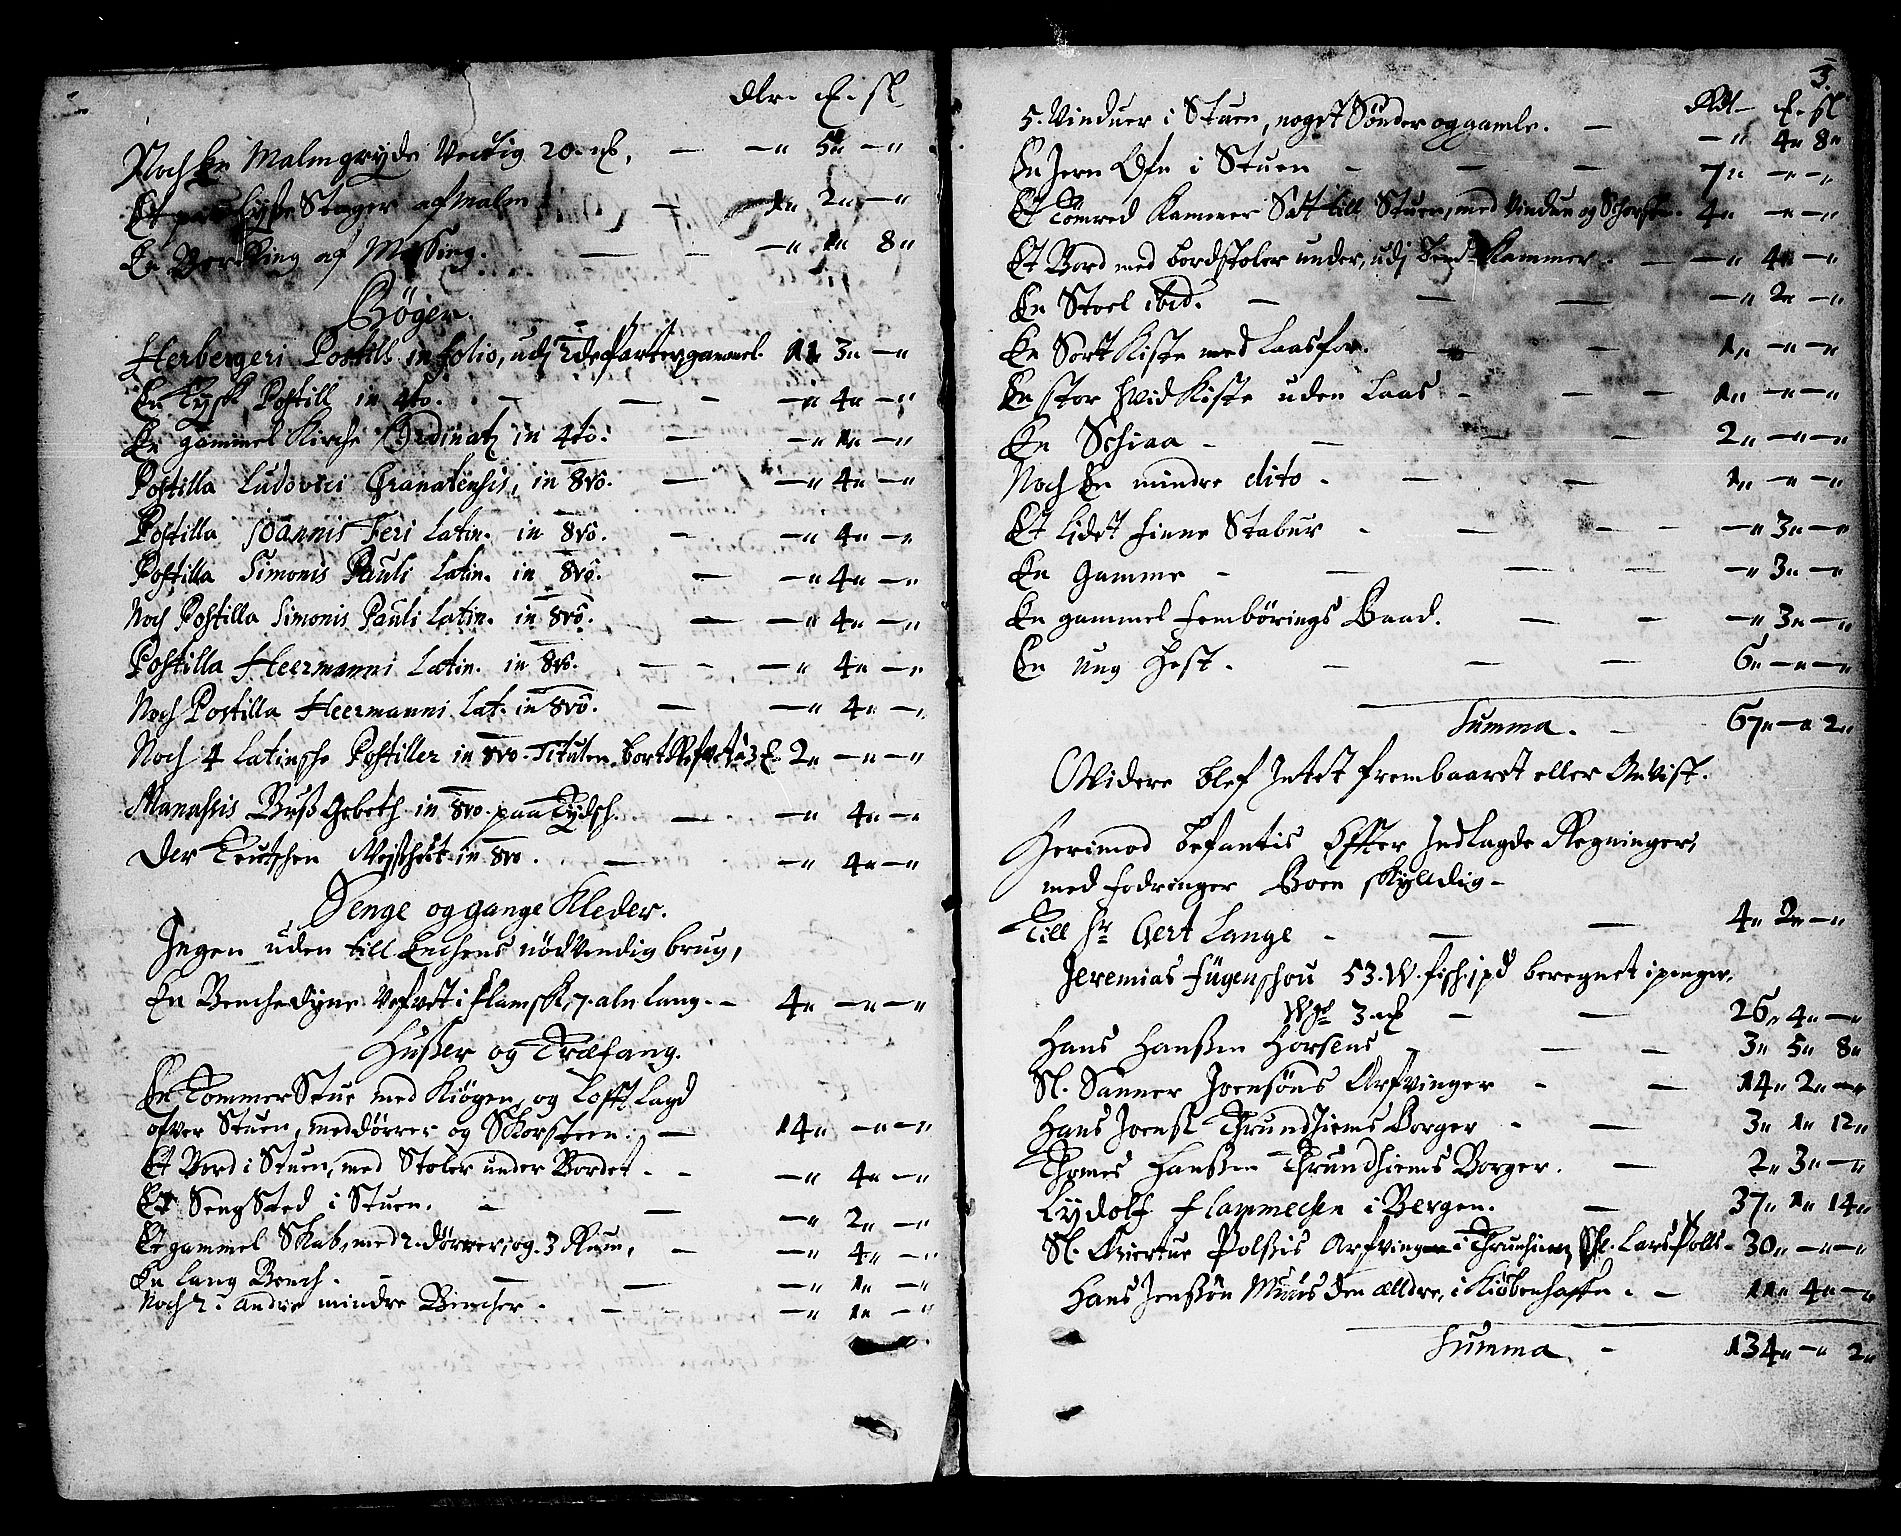 dlr. ɱ. sl
Noch En Malmgryde Vectig 20. ɱ, — —" 5" —"
Et par Lysse Stager af malm — 1" 2" —"
En Ring af Messing. — — —" 1" 8"
Bøger.
Herbergeri Postill in folio, udj 2de parter gammel. 11" 3" —"
En Tysk Postill in 4to. — — — —" 4" —"
En gammel Kirche Ordinatz in 4to. — —" 1" —"
Postilla Ludovici Granatensis, in 8vo. — —" 4" —"
Postilla Joannis Feri Latin. in 8vo. — —" 4" —"
Postilla Simonis Pauli Latin. in 8vo. — —" 4" —"
Noch Postilla Simonis Pauli Latin. in 8vo. — —" 4" —"
Postilla Heermanni Latin. in 8vo. — — —" 4" —"
Noch Postilla Heermanni Lat. in 8vo. — —" 4" —"
Noch 4 Latinsche Postiller in 8vo. Titulen bort 3 ɱ 2" —" —"
Manassis Buss Gebeth in 8vo. paa Tydsch. — . —" 4" —"
Der Teutschen Weissheit in 8vo. — —" 4" —"
Senge og gange Kleder.
Ingen uden till Enchens nödvendig brug,
En Benchedyne Vefvet i flamsk, 7. aln lang. — 4" —" —"
Husser og Træfang.
En Tommer Stue med Kiögen og Lofft Lagd
ofver Stuen, med dörrer og Skorsteen. — 14" —" —"
Et Bord i Stuen, med Stoler under Bordet. — —" 4" —"
Et Seng Sted i Stuen. — — —" 2" —"
Et gammel Skab, med 2. dörrer, og 3 Ruum, — —" 4" —"
En lang Bench. — — — —" 1" —"
Noch 2. andre mindre Bencher. — — —" 1" —"
3.
Rdl — ɱ. sl
5. Vinduer i Stuen, noget Sönder og gamle. — —" 4" 8"
En Jern Ofn i Stuen — — — 7" —" —"
Et Tömred Kammer Satt till Stuen, med Vindue og Schorsten. 4" —" —"
Et Bord med bordstoler under, udj bemt Kammer. — —" 4" —"
En Stoel ibid. — — — —" 2" —"
En Sort Kiste med Laas for. — — 1" —" —"
En stor hvid Kiste uden Laas — — — 1" —" —"
En Schiaa — — — — 2" —" —"
Noch En mindre dito. — — 1" —" —"
Et Lidet finne Stabur — — — — —" 3" —"
En Gamme — — — — —" 3" —"
En gammel fembörings Baad. — — —" 3" —"
En Ung Hest. — — — 6" —" —"
Summa. — 67" —" 2"
Widere blef Intet frembaaret eller Anvist.
Herimod befantis Effter Indlagde Regninger,
med fodringer Boen skylldig —
Till Hr Gert Lange — — — 4" 2" —"
Jeremias Fügenschou 53. W. fisch. 1 pd beregnet i penger,
Wgd 3 ɱ — — 26" 4" —"
Hans Hanssen Horsens — — — 3" 5" 8"
Sl. Sanner Joensöns Arfvinger — — 14" 2" —"
Hans Joensl Thrundhiems Borger — — 3" 1" 12"
Thomes Hanssen Thrundhiems Borger. — 2" 3" —"
Lydolf flammechen i Bergen. — 37" 1" 14"
Sl. Giertue Polssis Arfvinger i Thrunhiem, Sl. Lars Polls — 30" —" —"
Hans Jenssön Muus den ælldre, i Kiöbenhaffn. — 11" 4" —"
Summa. — 134" —" 2"